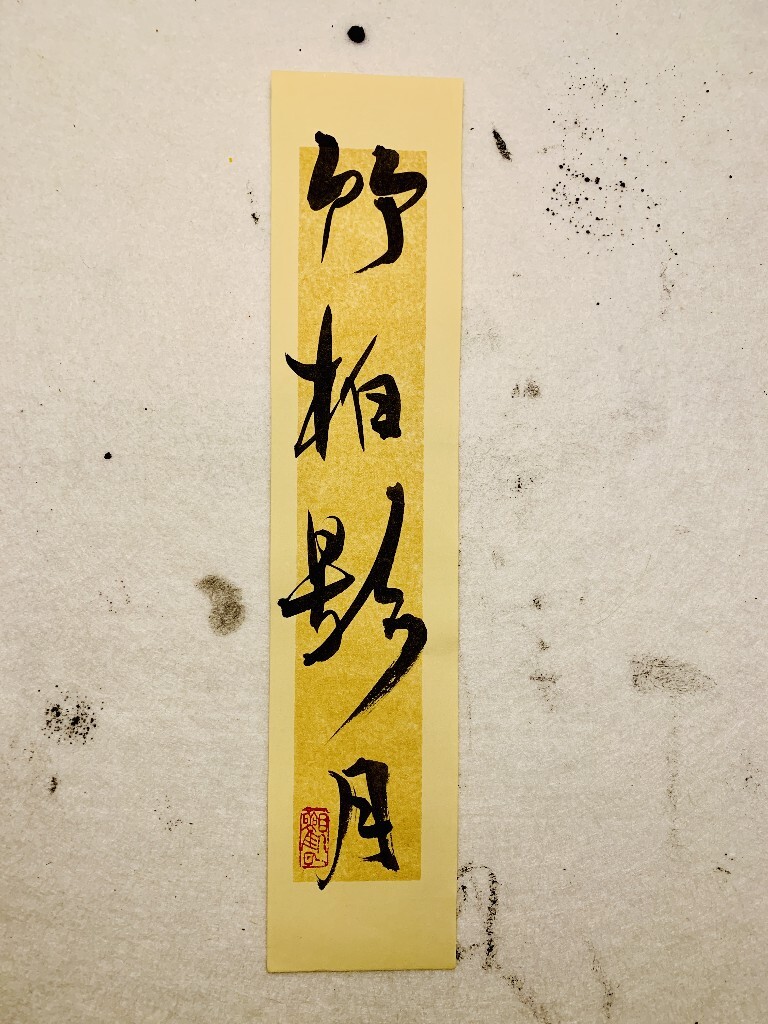 竹柏影月